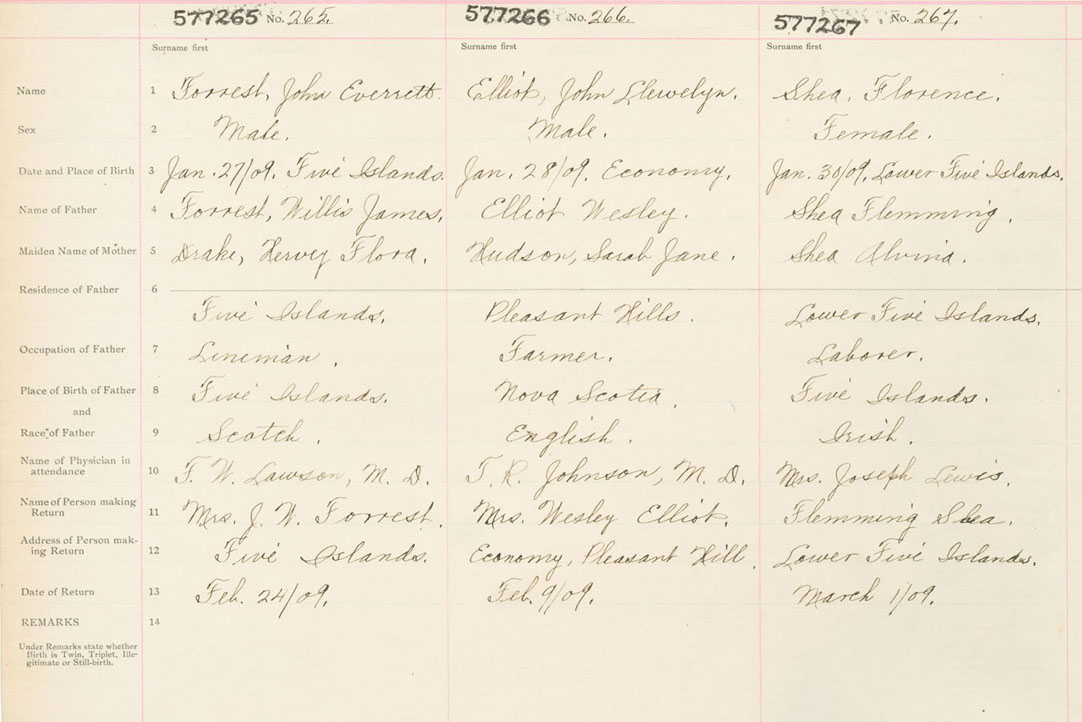 577265 No. 265. 577266 No. 266. 577267 No. 267.
Surname first Surname first Surname first
Name 1 Forrest, John Everrett. Elliot, John Llewelyn. Shea, Florence.
Sex 2 Male. Male. Female.
Date and Place of Birth 3 Jan. 27/09. Five Islands. Jan. 28/09. Economy. Jan. 30/09. Lower Five Islands.
Name of Father 4 Forrest, Willis James. Elliot Wesley. Shea Flemming.
Maiden Name of Mother 5 Drake, Hervey Flora. Hudson, Sarah Jane. Shea Alvina.
Residence of Father 6
Five Islands. Pleasant Hills. Lower Five Islands.
Occupation of Father 7 Lineman. Farmer. Laborer.
Place of Birth of Father 8 Five Islands. Nova Scotia. Five Islands.
and
Race of Father 9 Scotch. English. Irish.
Name of Physician in
attendance 10 F. W. Lawson, M. D. T. R. Johnson, M. D. Mrs. Joseph Lewis.
Name of Person making
Return 11 Mrs. J. W. Forrest. Mrs. Wesley Elliot. Flemming Shea.
Address of Person mak-
ing Return 12 Five Islands. Economy, Pleasant Hill. Lower Five Islands.
Date of Return 13 Feb. 24/09. Feb. 9/09. March 1/09.
REMARKS 14
Under Remarks state whether
Birth is Twin, Triplet, Ille-
gitimate or Still-birth.